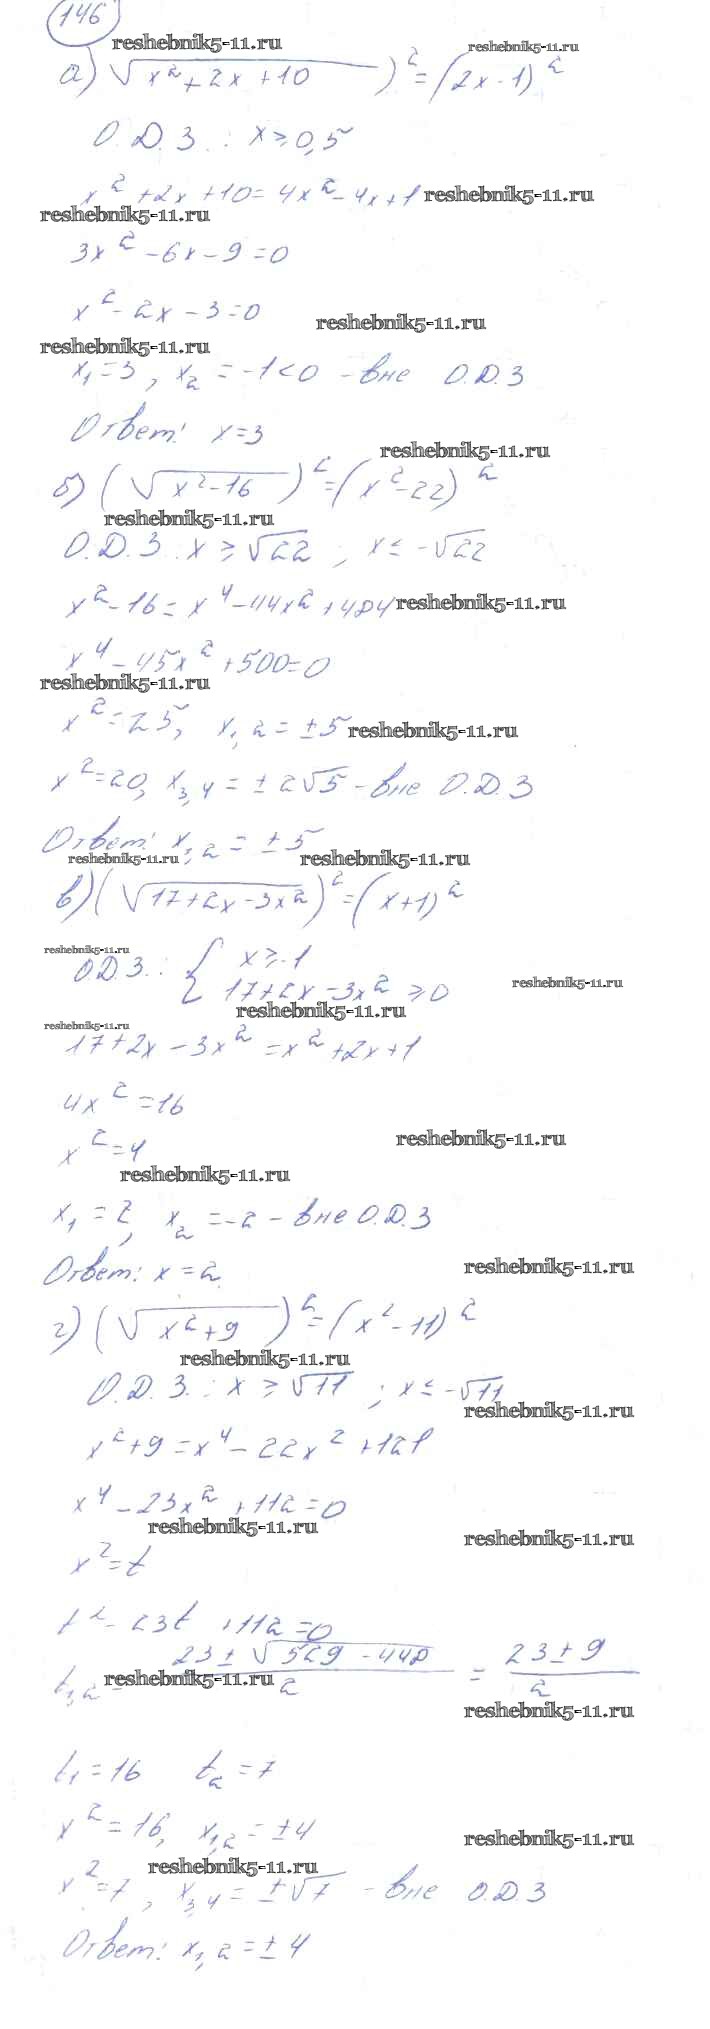 146
reshebnik5-11.ru
reshebnik5-11.ru
а) √(x² + 2x + 10) )² = (2x - 1)²
О.Д.З.: x ≥ 0,5
x² + 2x + 10 = 4x² - 4x + 1 reshebnik5-11.ru
reshebnik5-11.ru
3x² - 6x - 9 = 0
x² - 2x - 3 = 0
reshebnik5-11.ru
reshebnik5-11.ru
x₁ = 3, x₂ = -1 < 0 - вне О.Д.З
Ответ: x = 3
reshebnik5-11.ru
б) (√(x² - 16))² = (x² - 22)²
reshebnik5-11.ru
О.Д.З.: x ≥ √22 ; x ≤ -√22
x² - 16 = x⁴ - 44x² + 484 reshebnik5-11.ru
x⁴ - 45x² + 500 = 0
reshebnik5-11.ru
x² = 25, x₁,₂ = ±5 reshebnik5-11.ru
x² = 20, x₃,₄ = ±2√5 - вне О.Д.З
Ответ: x₁,₂ = ±5
reshebnik5-11.ru
reshebnik5-11.ru
в) (√(17 + 2x - 3x²))² = (x + 1)²
reshebnik5-11.ru
ОД.З.: { x ≥ -1
17 + 2x - 3x² ≥ 0
reshebnik5-11.ru
reshebnik5-11.ru
reshebnik5-11.ru
17 + 2x - 3x² = x² + 2x + 1
4x² = 16
x² = 4
reshebnik5-11.ru
reshebnik5-11.ru
x₁ = 2, x₂ = -2 - вне О.Д.З
Ответ: x = 2
reshebnik5-11.ru
г) (√(x² + 9))² = (x² - 11)²
reshebnik5-11.ru
О.Д.З.: x ≥ √11 ; x ≤ -√11
reshebnik5-11.ru
x² + 9 = x⁴ - 22x² + 121
x⁴ - 23x² + 112 = 0
reshebnik5-11.ru
reshebnik5-11.ru
x² = t
t² - 23t + 112 = 0
t₁,₂ = (23 ± √(529 - 448))/2 = (23 ± 9)/2
reshebnik5-11.ru
reshebnik5-11.ru
t₁ = 16 t₂ = 7
x² = 16, x₁,₂ = ±4
reshebnik5-11.ru
reshebnik5-11.ru
x² = 7, x₃,₄ = ±√7 - вне О.Д.З
Ответ: x₁,₂ = ±4